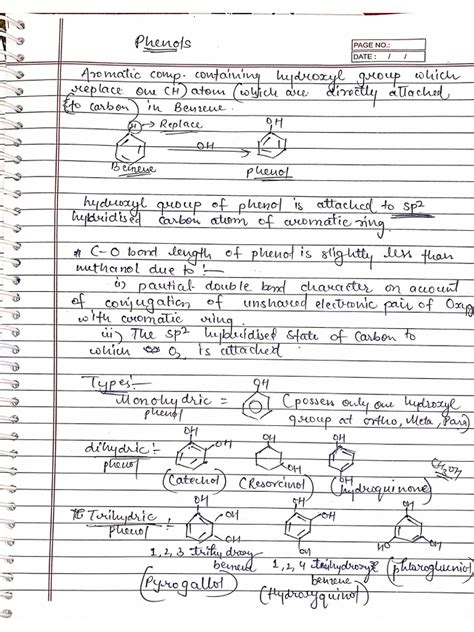 Phenols
PAGE NO.:
DATE: / /
Aromatic comp. containing hydroxyl group which
replace one (H) atom (which are directly attached
to carbon) in Benzene.
H → Replace
OH
OH
Benzene
phenol
hydroxyl group of phenol is attached to sp2
hybridised carbon atom of aromatic ring.
* C-O bond length of phenol is slightly less than
methanol due to :-
i) partial double bond character on account
of conjugation of unshared electronic pair of Oxy
with aromatic ring.
ii) The sp2 hybridised state of Carbon to
which O2 is attached
Types:-
OH
Monohydric = (possess only one hydroxyl
phenol
group at ortho, Meta, Para)
dihydric :-
phenol
OH
OH
OH
OH
OH
(Catechol)
(Resorcinol)
(hydroquinone)
CH3OH
Trihydric =
phenol
OH
OH
OH
OH
OH
OH
OH
HO
OH
1, 2, 3 trihydroxy
benzene
1, 2, 4 trihydroxy
benzene
(Pyrogallol)
(Hydroxyquinol)